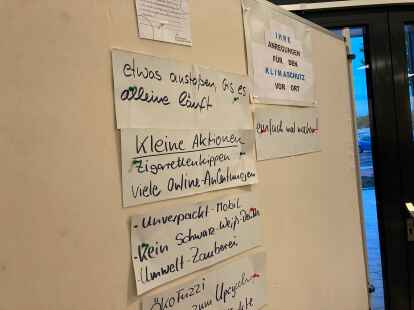 etwas anstoßen, bis es
alleine läuft
Kleine Aktionen
Zigarettenkippen
viele Online-Anleitungen
- Unverpackt-Mobil
- Kein Schwarz-Weiß-Denken
- Umwelt-Zauberei
ÖkoFuzzi
zum
IHRE
ANREGUNGEN
FÜR DEN
KLIMASCHUTZ
VOR ORT
einfach mal machen!